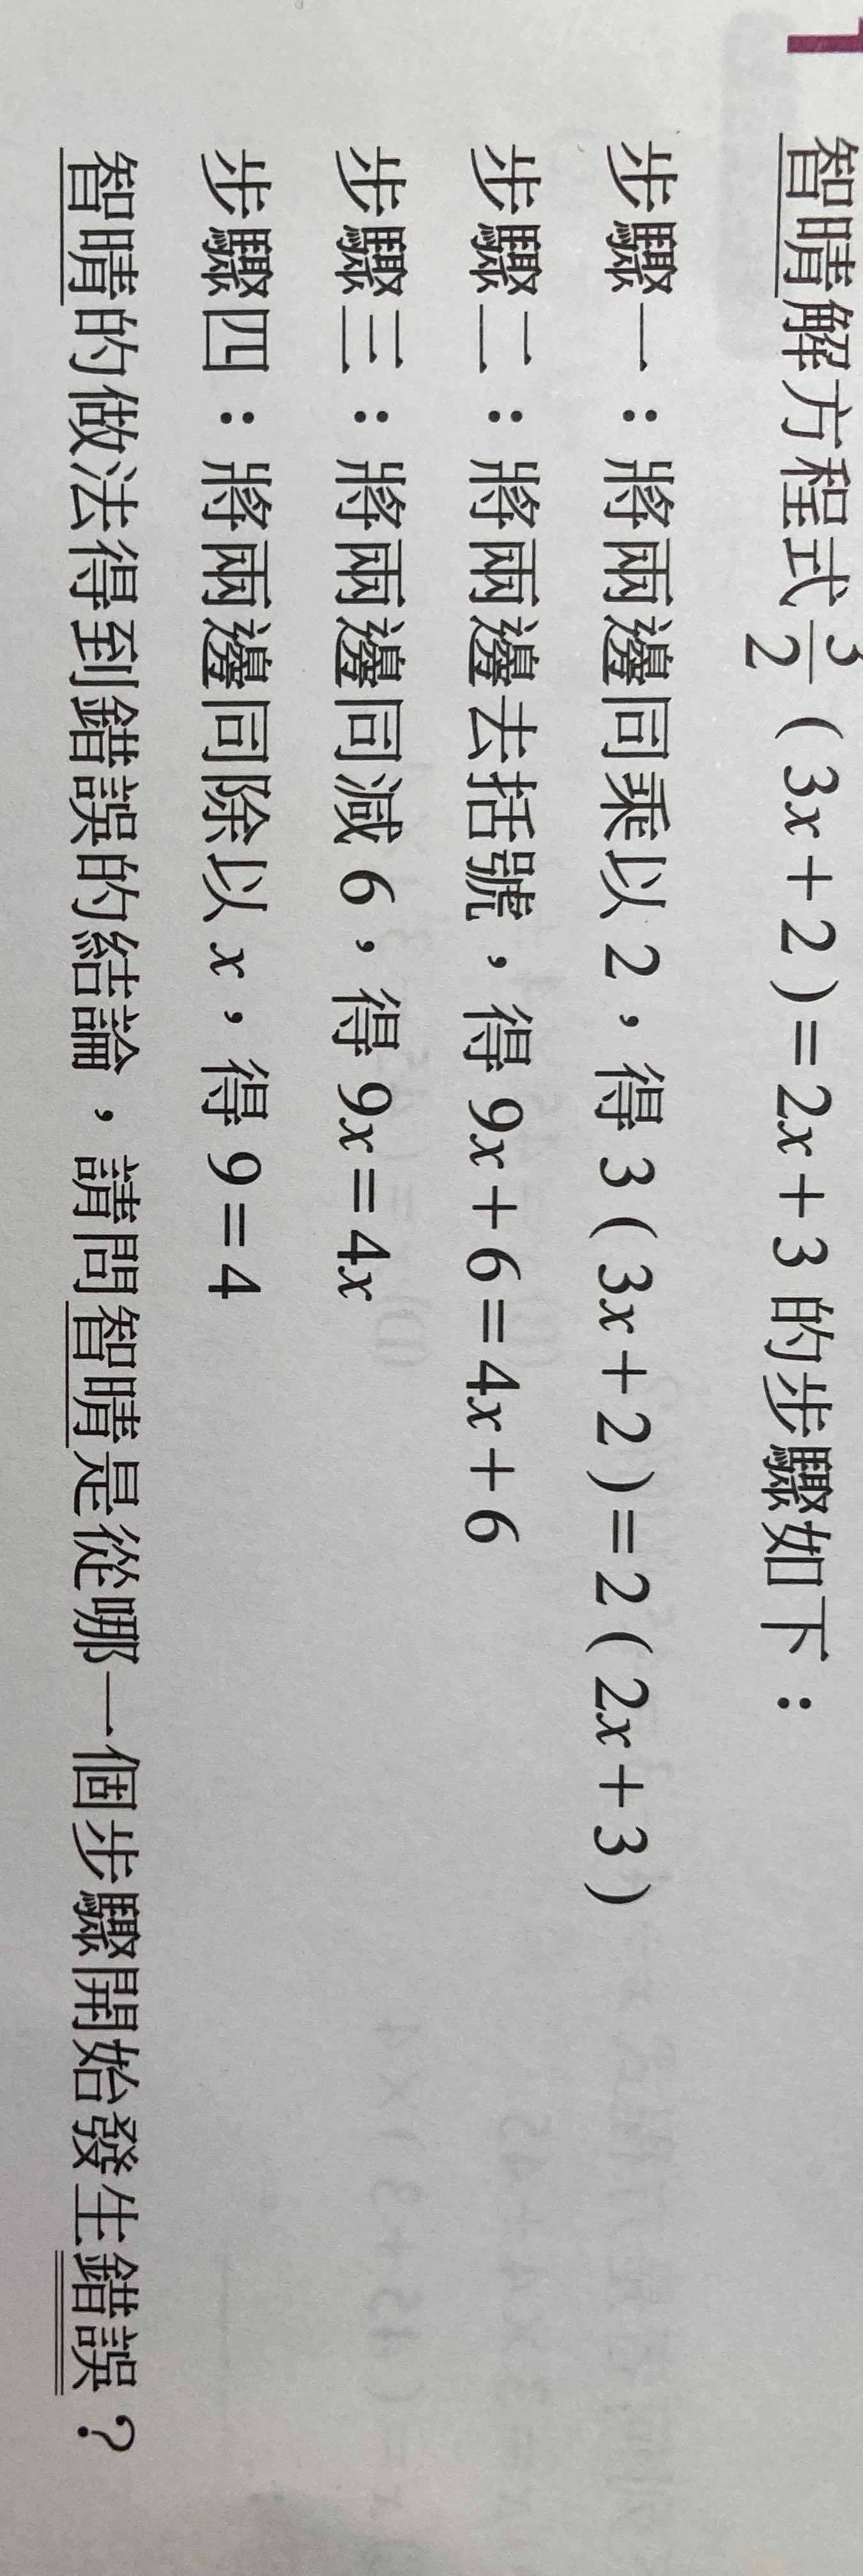 1
智晴解方程式 3/2 ( 3x + 2 ) = 2x + 3 的步驟如下：
步驟一：將兩邊同乘以 2，得 3 ( 3x + 2 ) = 2 ( 2x + 3 )
步驟二：將兩邊去括號，得 9x + 6 = 4x + 6
步驟三：將兩邊同減 6，得 9x = 4x
步驟四：將兩邊同除以 x，得 9 = 4
智晴的做法得到錯誤的結論，請問智晴是從哪一個步驟開始發生錯誤？